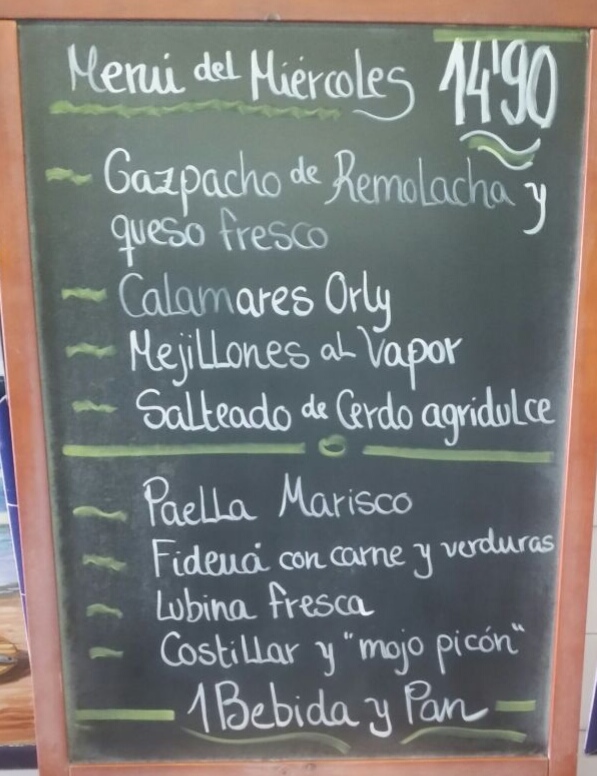 Menú del Miércoles 14'90
Gazpacho de Remolacha y
queso fresco
Calamares Orly
Mejillones al Vapor
Salteado de Cerdo agridulce
Paella Marisco
Fideuá con carne y verduras
Lubina fresca
Costillar y "mojo picón"
1 Bebida y Pan